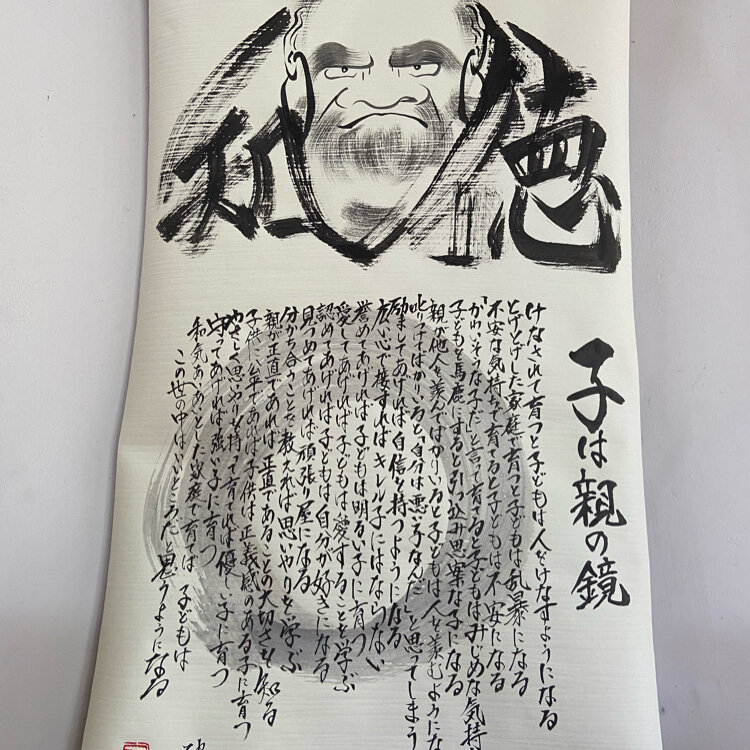 子は親の鏡
けなされて育つと子どもは人をけなすようになる
とげとげした家庭で育つと子どもは乱暴になる
不安な気持ちで育てると子どもは不安になる
「かわいそうな子だ」と言って育てると子どもはみじめな気持
子どもを馬鹿にすると引っ込み思案な子になる
親が他人を羨んでばかりいると子どもは人を羨むようにな
叱りつけてばかりいると「自分は悪い子なんだ」と思ってしまう
励ましてあげれば自信を持つようになる
広い心で接すればキレル子にはならない
誉めてあげれば子どもは明るい子に育つ
愛してあげれば子どもは愛することを学ぶ
認めてあげれば子どもは自分が好きになる
見つめてあげれば頑張り屋になる
分かち合うことを教えれば思いやりを学ぶ
親が正直であれば正直であることの大切さを知る
子供に公平であれば子供は正義感のある子に育つ
やさしく思いやりを持って育てれば優しい子に育つ
守ってあげれば強い子に育つ
和気あいあいとした家庭で育てば子どもは
この世の中はいいところだと思うようになる